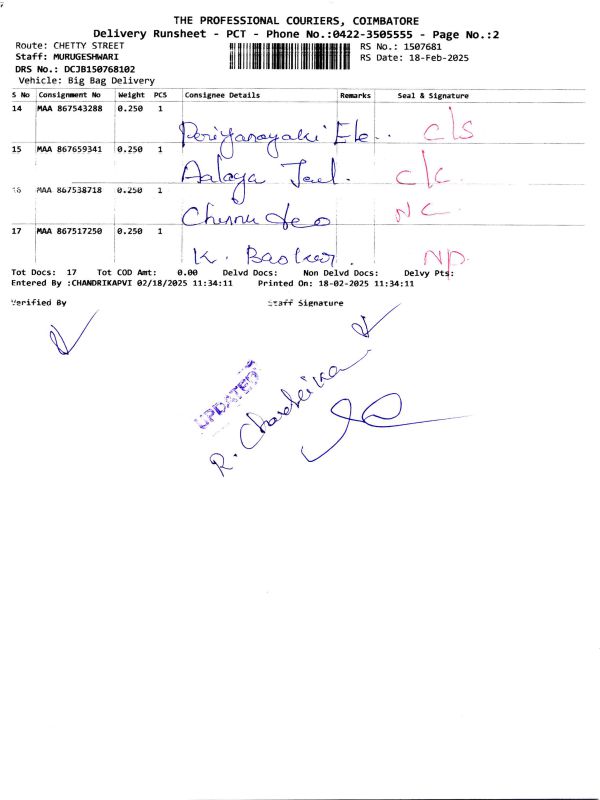 THE PROFESSIONAL COURIERS, COIMBATORE
Delivery Runsheet - PCT - Phone No.:0422-3505555 - Page No.:2
Route: CHETTY STREET
RS No.: 1507681
Staff: MURUGESHWARI
RS Date: 18-Feb-2025
DRS No.: DCJB150768102
Vehicle: Big Bag Delivery
S No Consignment No Weight PCS Consignee Details Remarks Seal & Signature
14 MAA 867543288 0.250 1
Periyanayaki Ele.. C/S
15 MAA 867659341 0.250 1
Aalaya C/C.
16 MAA 867538718 0.250 1
Chinnu NC.
17 MAA 867517250 0.250 1
K. Baskar. NP.
Tot Docs: 17 Tot COD Amt: 0.00 Delvd Docs: Non Delvd Docs: Delvy Pts:
Entered By :CHANDRIKAPVI 02/18/2025 11:34:11 Printed On: 18-02-2025 11:34:11
Verified By Staff Signature
UPDATED
R. Chandrika